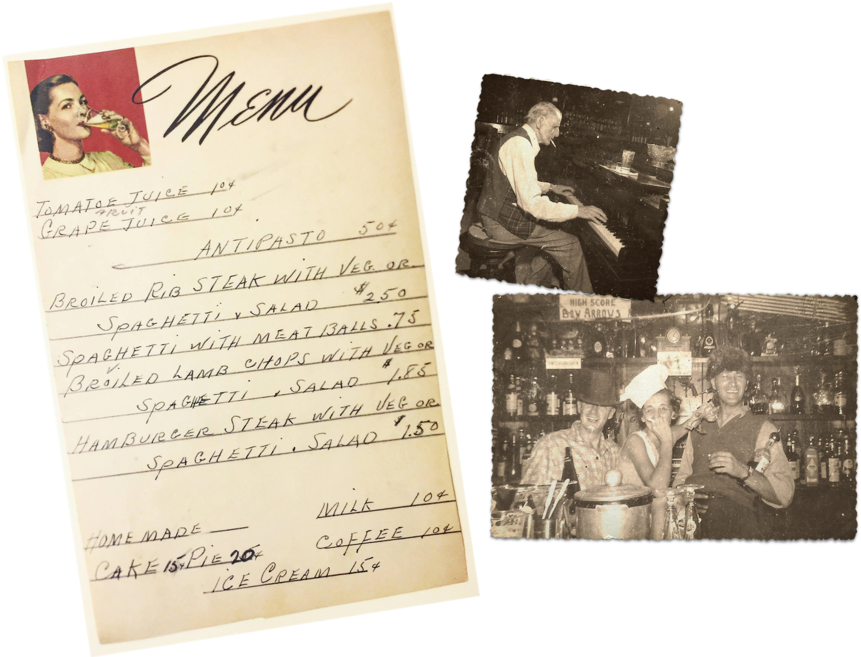 Menu
TOMATOE JUICE 10¢
FRUIT
GRAPE JUICE 10¢
ANTIPASTO 50¢
BROILED RIB STEAK WITH VEG OR
SPAGHETTI & SALAD $2.50
SPAGHETTI WITH MEAT BALLS .75
BROILED LAMB CHOPS WITH VEG OR
SPAGHETTI . SALAD $1.85
HAMBURGER STEAK WITH VEG OR
SPAGHETTI . SALAD $1.50
MILK 10¢
HOME MADE
COFFEE 10¢
CAKE 15 PIE 20¢
ICE CREAM 15¢
HIGH SCORE
BOW ARROWS